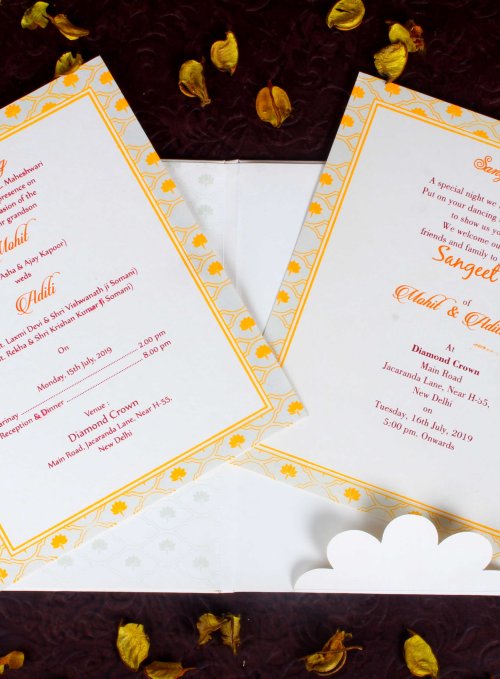 Maheshwari
presence on
casion of the
grandson
Mohit
Asha & Ajay Kapoor)
weds
Aditi
Laxmi Devi & Shri Vishwanath ji Somani)
t. Rekha & Shri Krishan Kumar ji Somani)
On
Monday, 15th July, 2019
2.00 pm
Reception & Dinner
8.00 pm
Venue :
Diamond Crown
Main Road, Jacaranda Lane, Near H-55,
New Delhi
Sang
A special night we
Put on your dancing
to show us you
We welcome our
friends and family to
Sangeet
of
Mohit & Aditi
At
Diamond Crown
Main Road
Jacaranda Lane, Near H-55,
New Delhi
on
Tuesday, 16th July, 2019
5:00 pm. Onwards